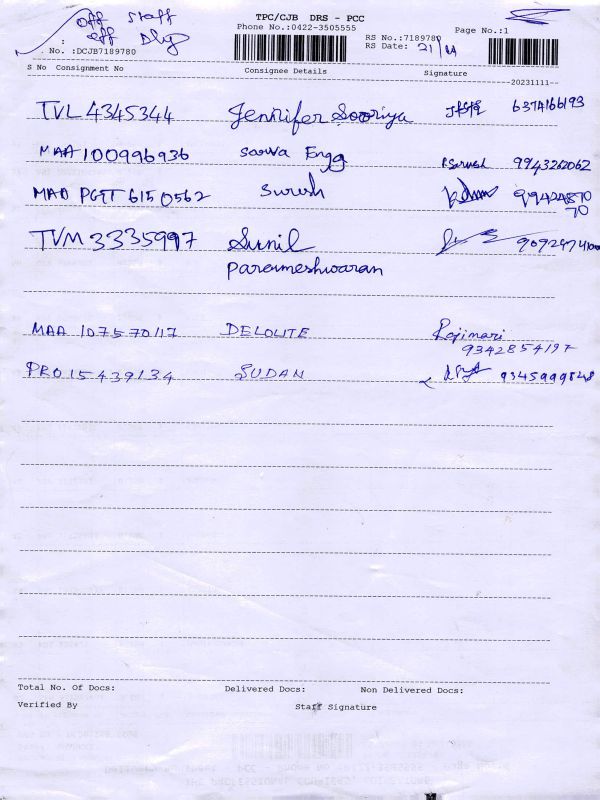 off staff
off Dlg
TPC/CJB DRS - PCC
Phone No.:0422-3505555
Page No.:1
RS No.:718978
RS Date: 21/11
: 
. No. :DCJB7189780
S No Consignment No Consignee Details Signature
20231111
TVL 4345344 Jennifer Sooriya 6374166193
MAA 100996936 Sarva Engg 9943262062
MAD PGTT 6150562 Suresh 9942487070
TVM 3335997 Sunil
Parameshwaran
MAA 107570117 DELOLITE Rajimari
9342854197
PRO 15439134 SUDAN 9345999848
Total No. Of Docs: Delivered Docs: Non Delivered Docs:
Verified By Staff Signature